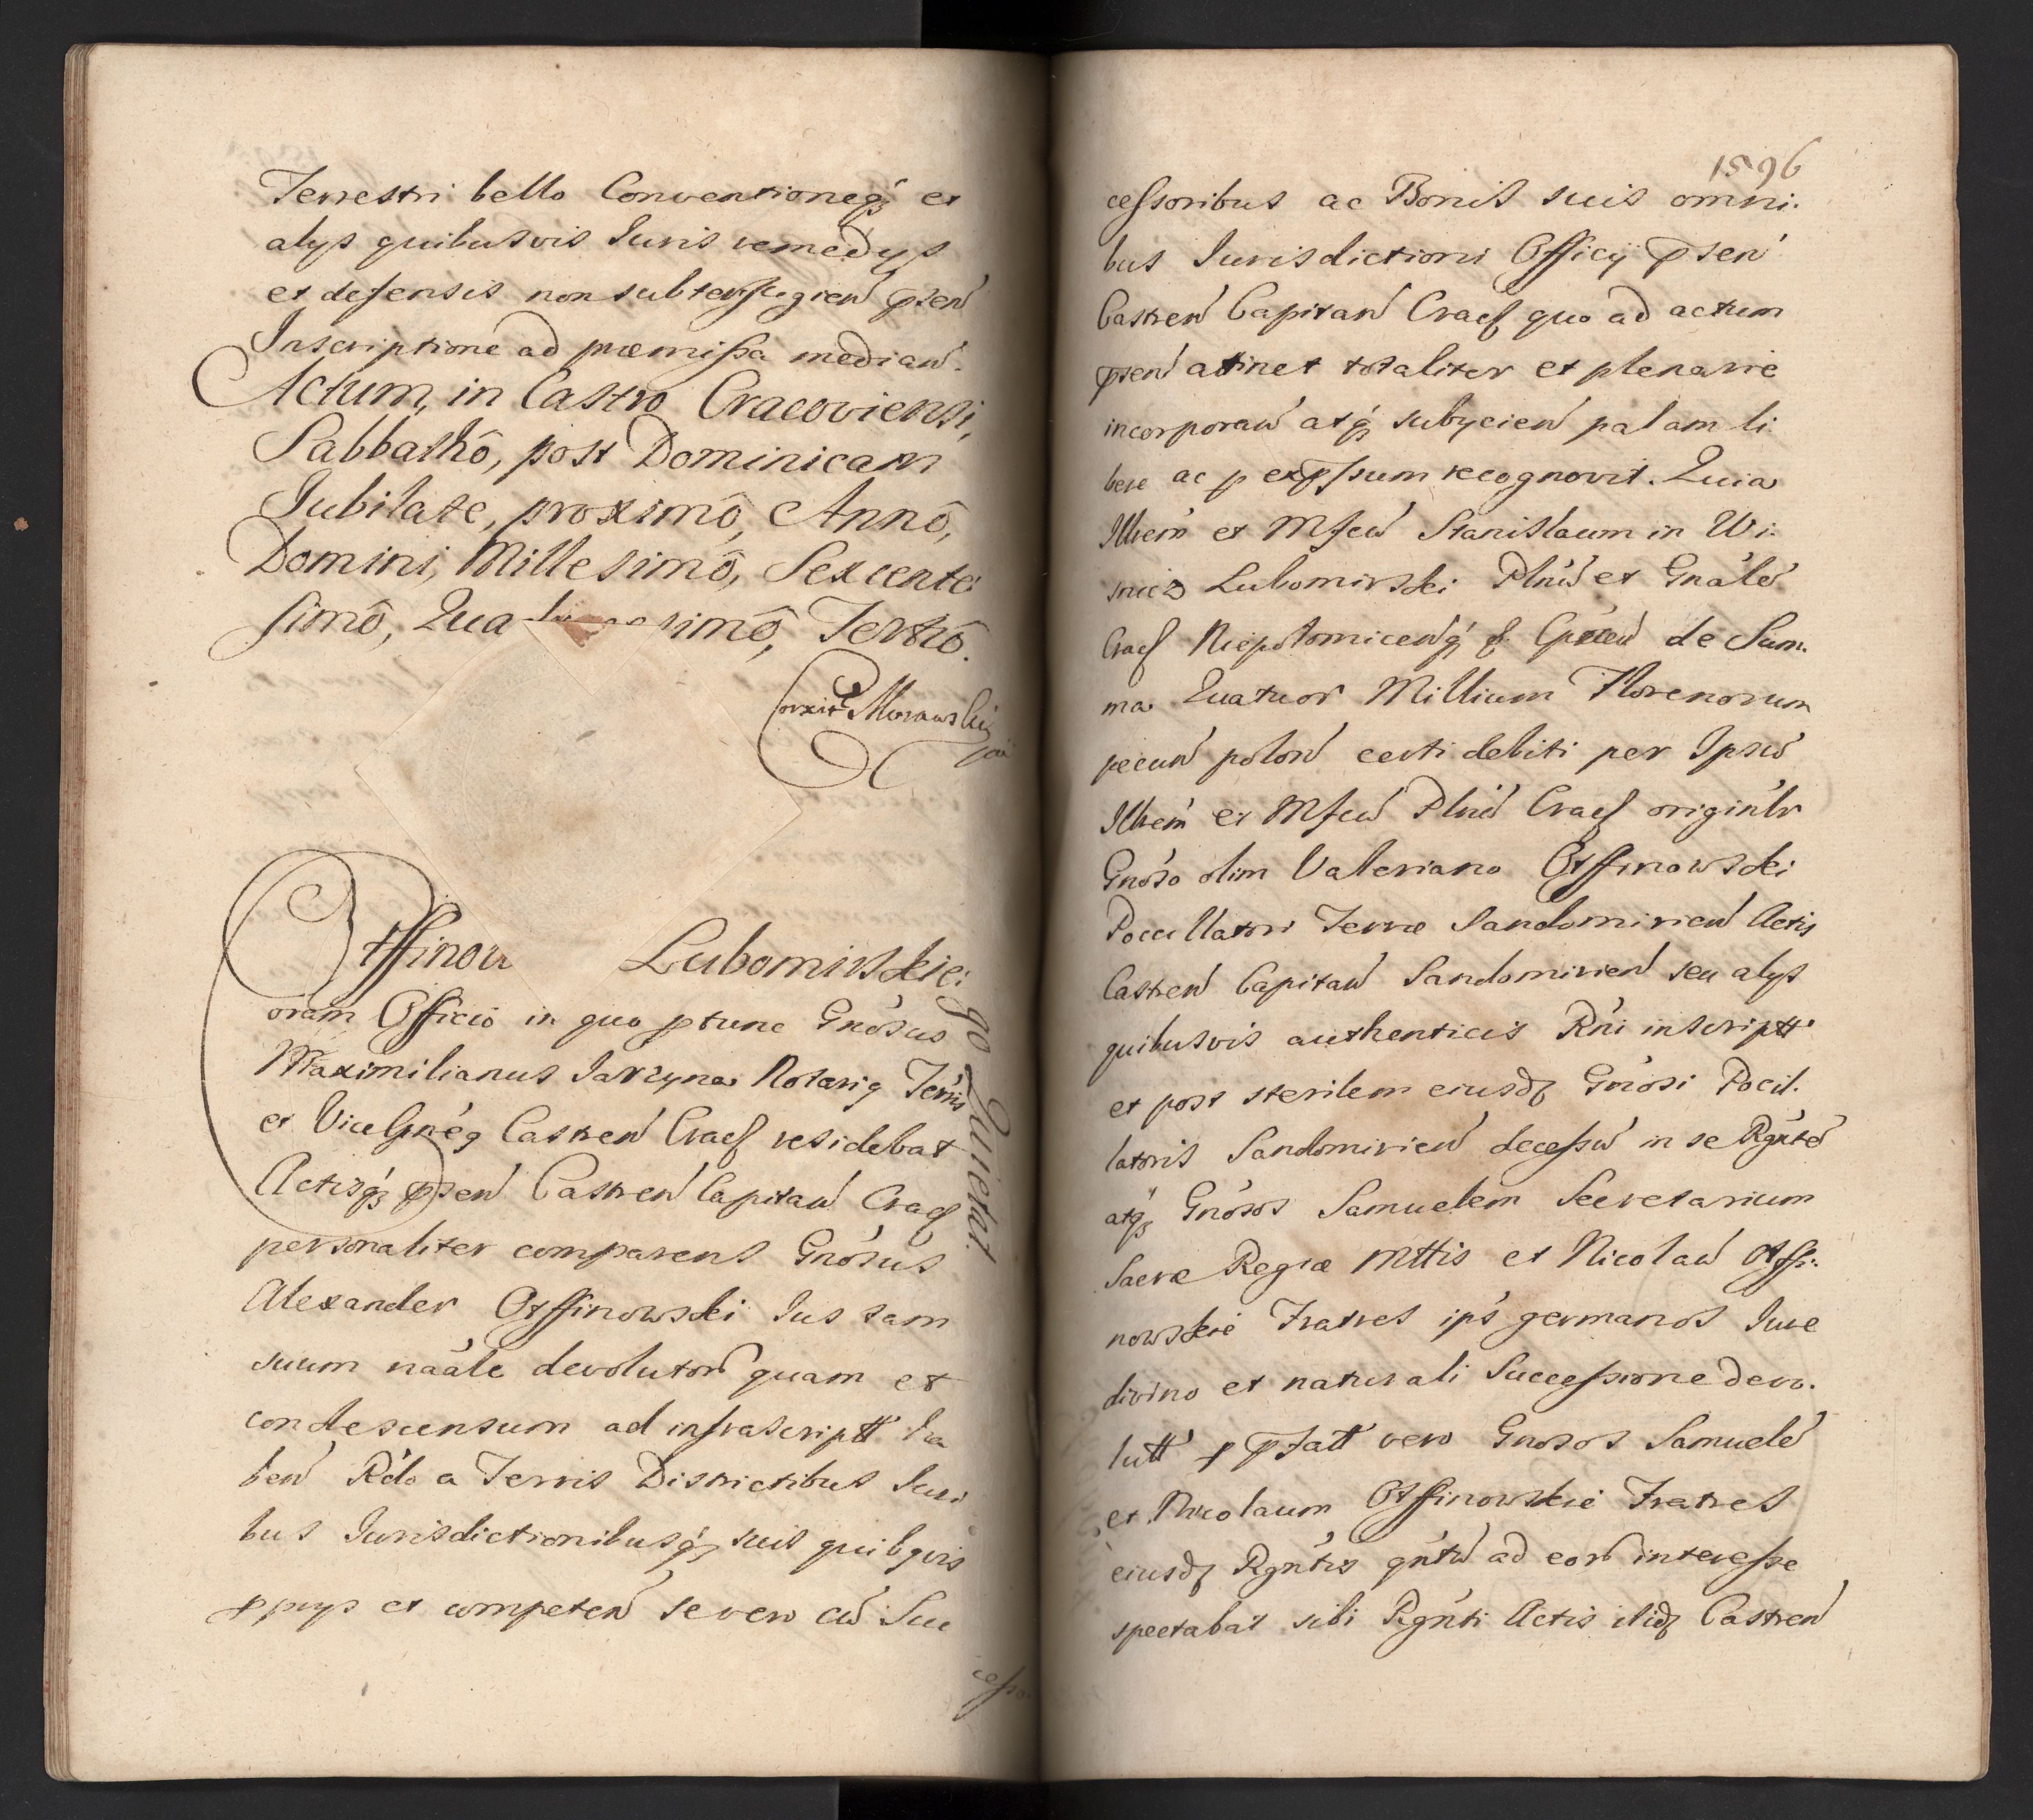 Terrestri bello Conventioneq́ꝫ et
alys quibusvis Iuris remedys
et defensis non subterfugien̄ p̄sen̄
Inscriptione ad præmissa median̄.
Actum, in Castro Cracoviensi,
Sabbathô, post Dominicam
Iubilate, proximô, Annô,
Domini, Millesimô, Sexcente
simô, Qua simô, Tertiô.
Correxit Morawski
Otffinow Lubomirskie:
go Quietat.
oram Officio in quo ptunc Gnósus
Maximilianus Jarzyna Notarig Terris
et Vice Castren̄ Cracꝭ residebat
Actisq́ꝫ p̄sen̄ Castren̄ Capitan̄ Cracꝭ
personaliter comparens Gnósus
Alexander Otffinowski Ius tam
suum naále devolutor̄ quam et
condescensum ad infrascriptt ha
ben̄ Rdo a Terris Districtibus Iuri
bus Iurisdictionibusq́ꝫ suis quibqvis
ppys et competen̄ se vero cū Suc
cesso
1596
cessoribus ac Bonis suis omni:
bus Iurisdictioni Officij p̄sen̄
Castren̄ Capitan̄ Cracꝭ quo ad actum
p̄sen̄ attinet totaliter et plenarie
incorporan̄ atq́ꝫ subycien̄ palam li:
bere ac p exp̄ssum recognovit. Quia
Illrem̄ et Mfcū Stanislaum in Wi:
snicz Lubomirski Plnū et Gnále
Cracꝭ Niepolomicen̄q́ꝫ de Sum:
ma Quatuor Millium Florenorum
pecun̄ polon̄ certi debiti per Ipsū
Illrem̄ et Mfcū Plnū Cracꝭ originlr
Gnóso olim Valeriano Otffinowski
Poccillatori Terræ Sandomirien̄ Actis
Castren̄ Capitan̄ Sandomirien̄ seu alys
quibusvis authenticis Rńi inscriptt
et post sterilem eiusdꝫ Gnósi Pocil:
latoris Sandomirien̄ decessū in se Rgntē
atq́ꝫ Gnósos Samuelem Secretarium
Sacræ Regiæ Mttis et Nicolaū Otffi:
nowskie Fratres ips̄ germanos Iure
divino et naturali Successione devo:
lutt p p̄fatt vero Gnosos Samuelē
et Nicolaum Otffinowskie Fratres
eiusdꝫ Rgntis qntū ad eor̄ interesse
spectabat sibi Rgnti Actis itidꝫ Castren̄